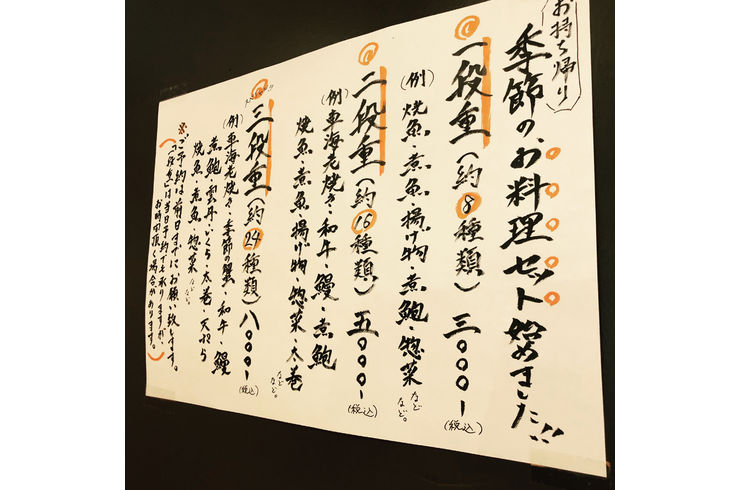 お持ち帰り
季節の、お料理セット始めました!!
一段重(約8種類)三〇〇〇ー(税込)
(例)焼魚・煮魚・揚げ物・煮鮑・惣菜など。
二段重(約16種類)五〇〇〇ー(税込)
(例)車海老焼き・和牛・鰻・煮鮑
焼魚・煮魚・揚げ物・惣菜・太巻など。
三段重(約24種類)八〇〇〇ー(税込)
(例)車海老焼き・季節の蟹・和牛・鰻
煮鮑・雲丹・いくら・太巻・天ぷら
焼魚・煮魚・惣菜など。
※ご予約は前日までにお願い致します。
(「一段重」は当日予約でも承りますが、
お時間頂く場合があります。)